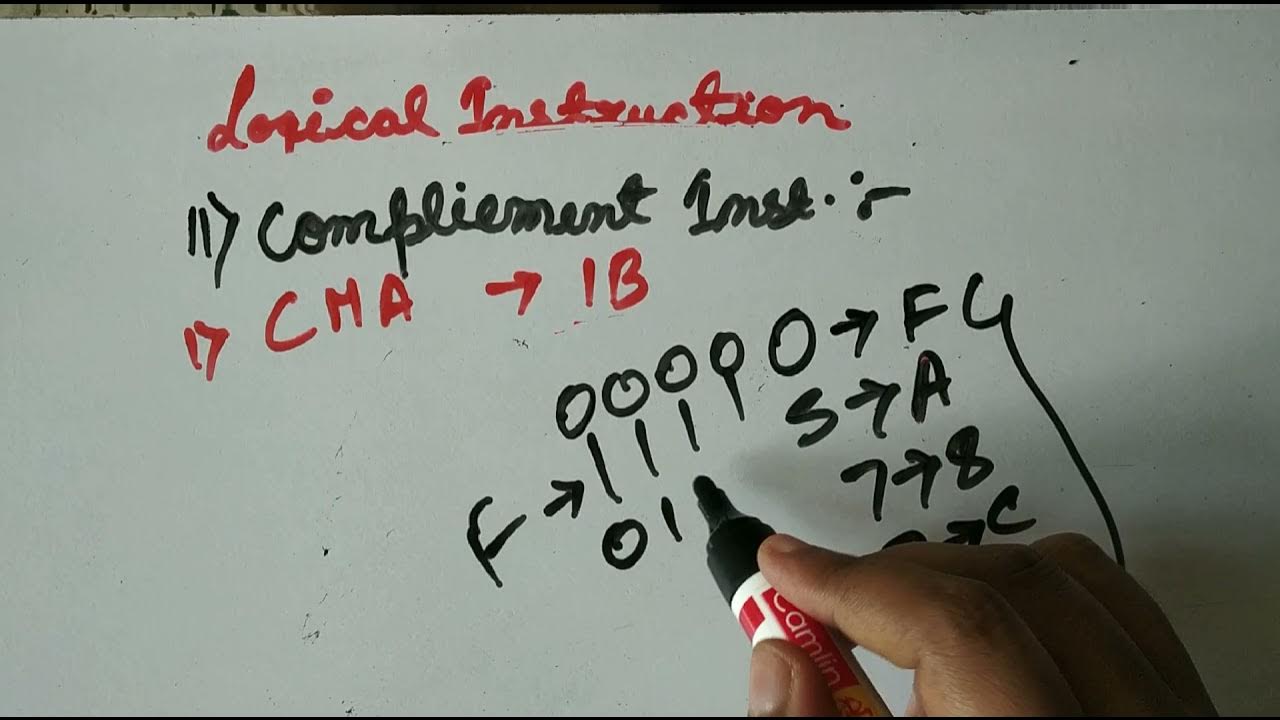 Logical Instruction
11) Compliement Inst. :-
1) CMA → 1B
0 0 0 0 0 → F
1 1 1 1 5 → A
7 → 8
F → 0 1
→ C
Camlin